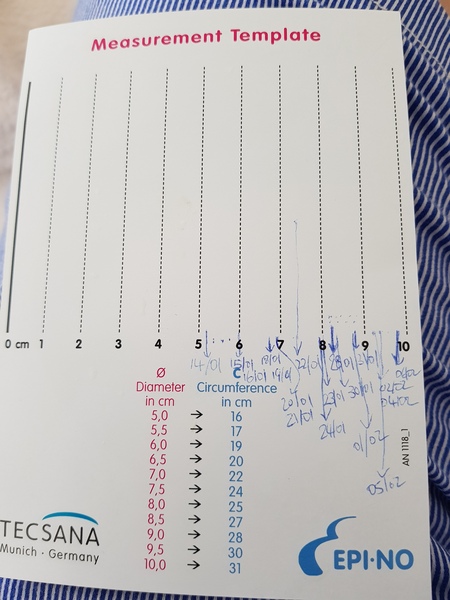 Measurement Template
0 cm 1 2 3 4 5 6 7 8 9 10
14/01 15/01 18/01 22/01 28/01 31/01 06/02
16/01 19/01 02/02
20/01 23/01 30/01 04/02
21/01
24/01 01/02
05/02
Ø C
Diameter Circumference
in cm in cm
5,0 → 16
5,5 → 17
6,0 → 19
6,5 → 20
7,0 → 22
7,5 → 24
8,0 → 25
8,5 → 27
9,0 → 28
9,5 → 30
10,0 → 31
AN 1118_1
TECSANA
Munich · Germany
EPI·NO